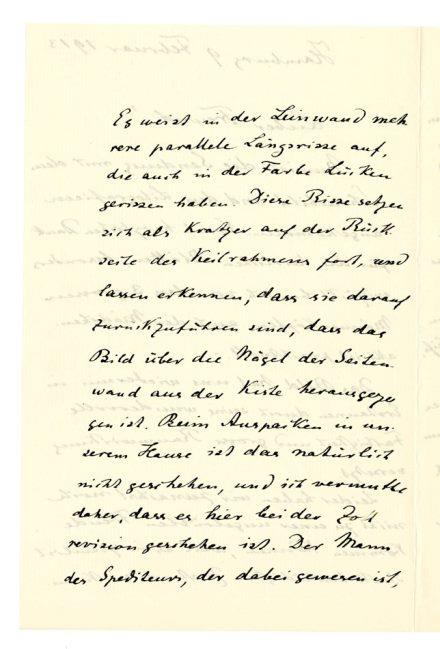 Es weist in der Leinwand meh
rere parallele Längsrisse auf,
die auch in der Farbe Lücken
gerissen haben. Diese Risse setzen
sich als Kratzer auf der Rück
seite des Keilrahmens fort, und
lassen erkennen, dass sie darauf
zurückzuführen sind, dass das
Bild über die Nägel der Seiten
wand aus der Kiste herausgezo
gen ist. Beim Auspacken in un
serem Hause ist das natürlich
nicht geschehen, und ich vermuthe
daher, dass es hier bei der Zoll
revision geschehen ist. Der Mann
des Spediteurs, der dabei gewesen ist,